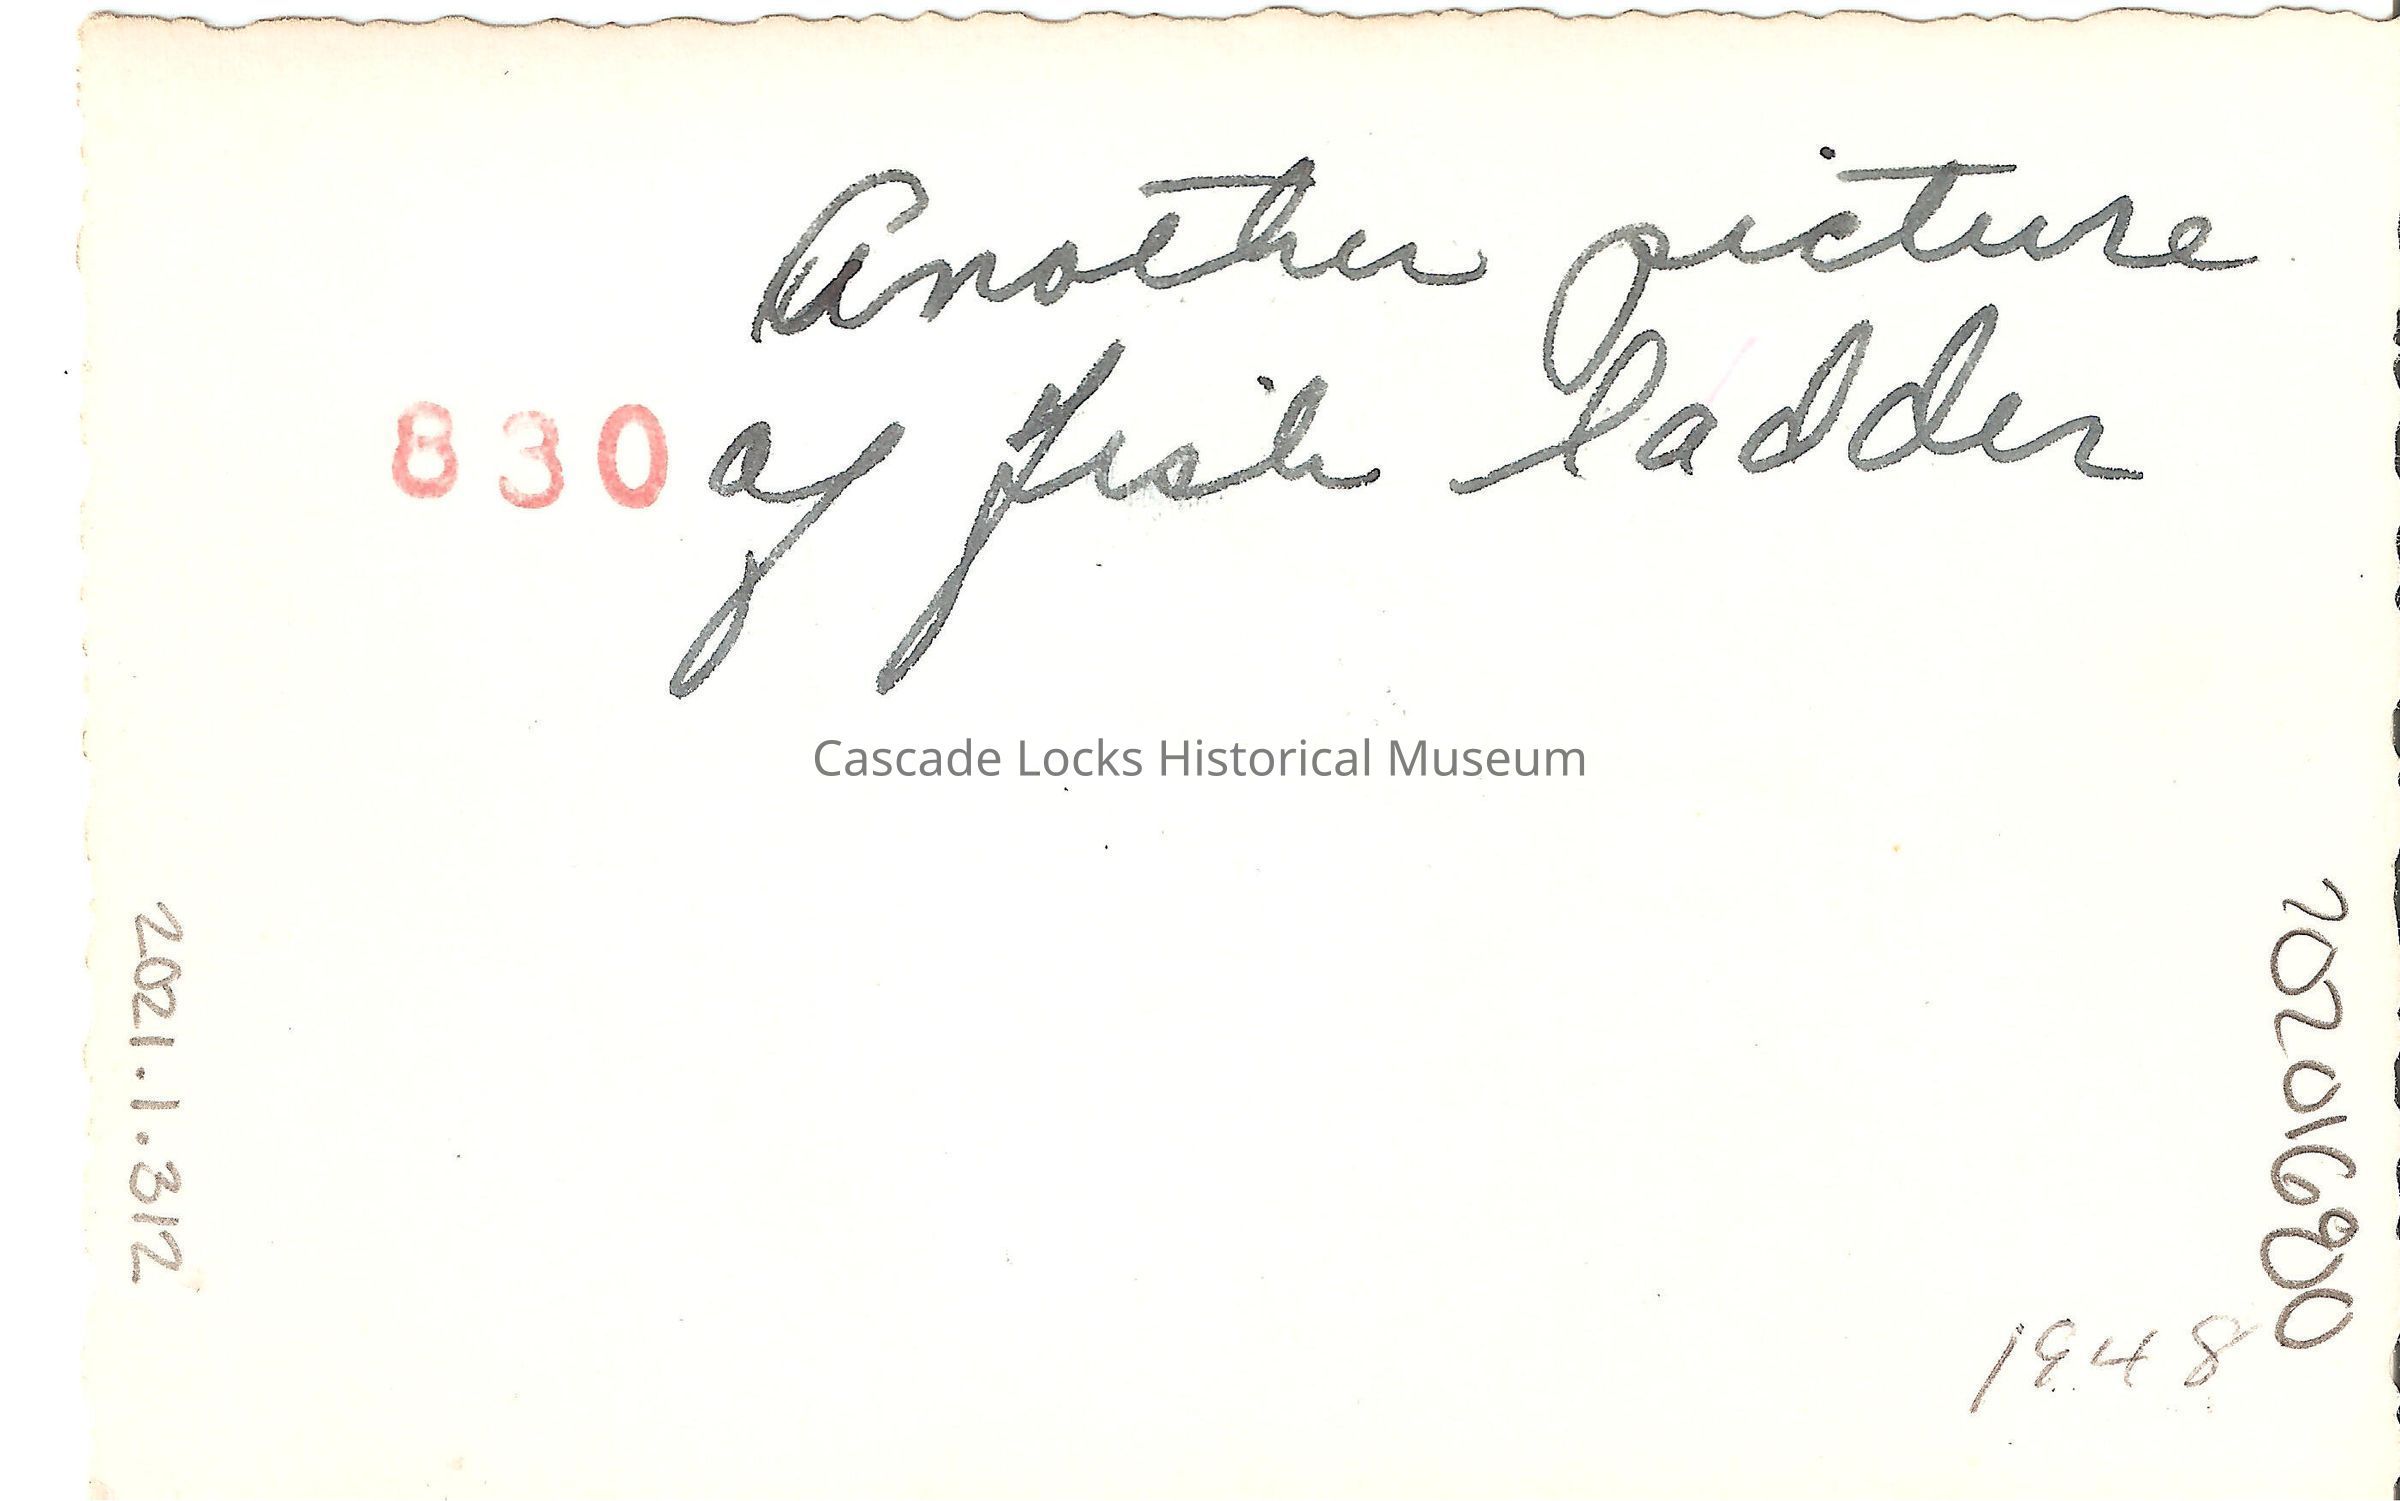 Another picture
830 of fish ladder
Cascade Locks Historical Museum
2021.1.312
202016980
1948